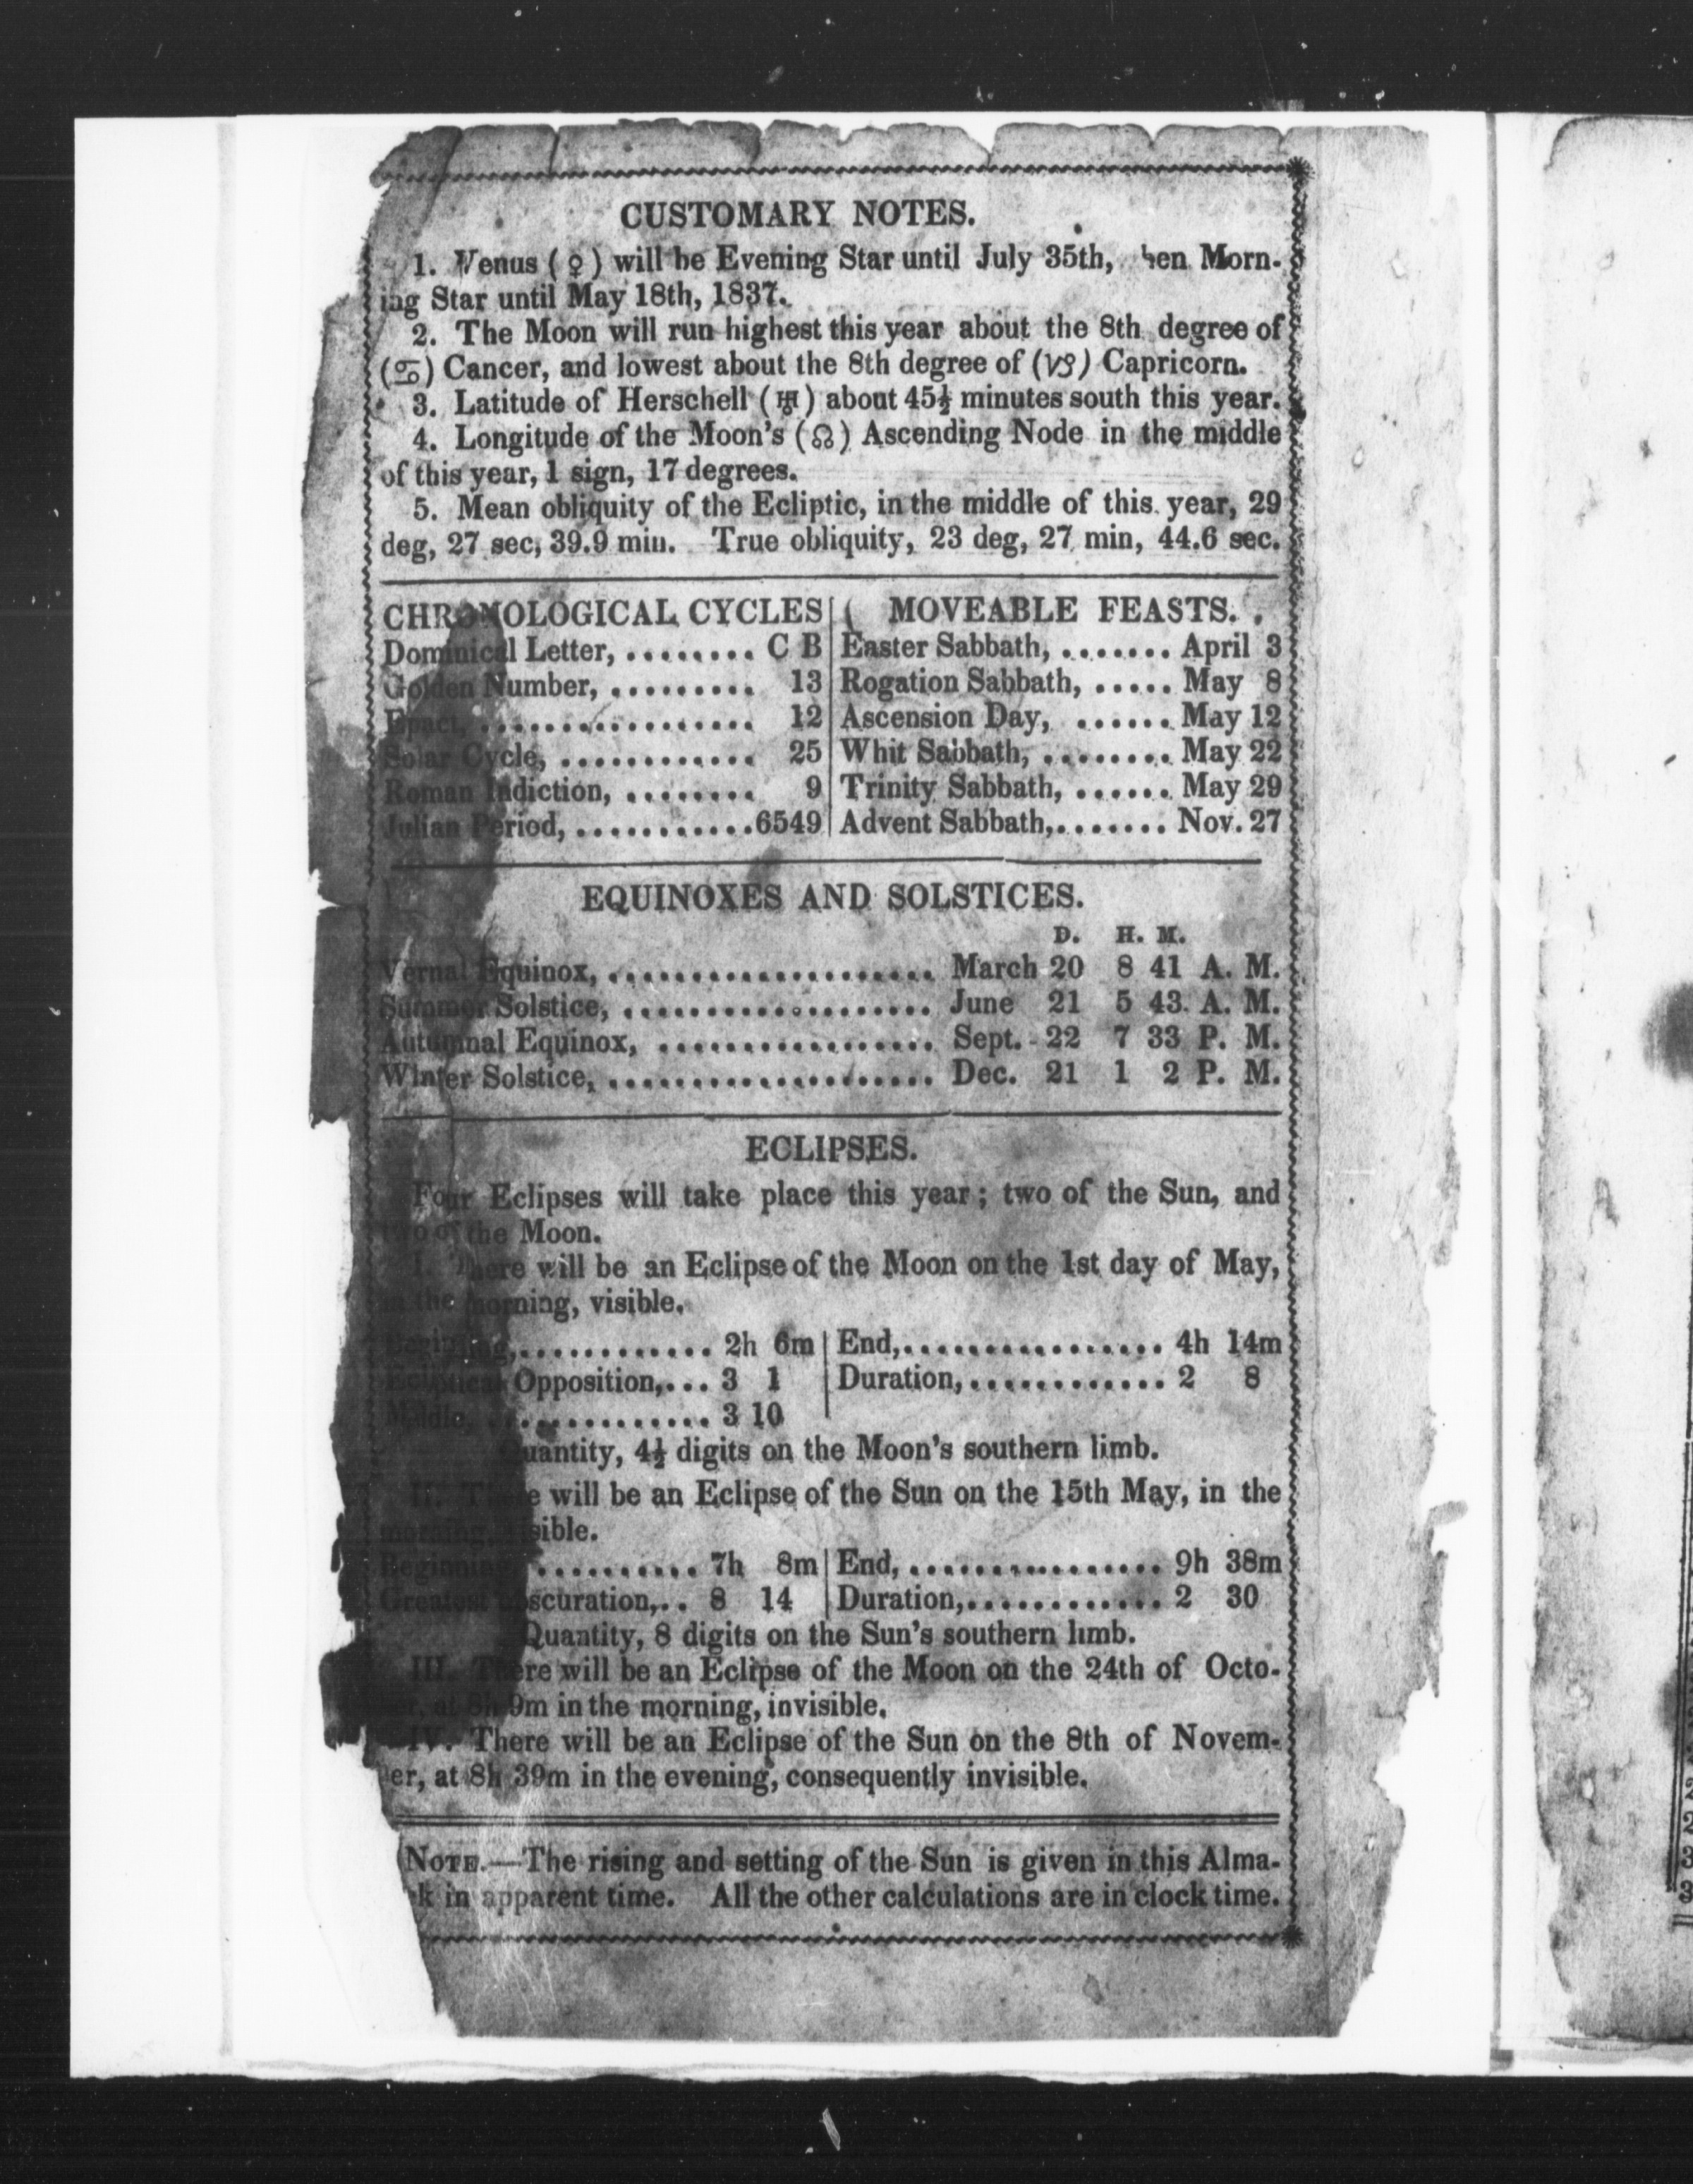 CUSTOMARY NOTES.
1. Venus (♀) will be Evening Star until July 35th, hen Morn-
ing Star until May 18th, 1837.
2. The Moon will run highest this year about the 8th degree of
(♋) Cancer, and lowest about the 8th degree of (♑) Capricorn.
3. Latitude of Herschell (♅) about 45½ minutes south this year.
4. Longitude of the Moon's (☊) Ascending Node in the middle
of this year, 1 sign, 17 degrees.
5. Mean obliquity of the Ecliptic, in the middle of this year, 29
deg, 27 sec, 39.9 min. True obliquity, 23 deg, 27 min, 44.6 sec.
CHRONOLOGICAL CYCLES
Dominical Letter, ........ C B
Golden Number, ......... 13
Epact, ................. 12
Solar Cycle, ............ 25
Roman Indiction, ........ 9
Julian Period, ...........6549
MOVEABLE FEASTS.
Easter Sabbath, ....... April 3
Rogation Sabbath, ..... May 8
Ascension Day, ...... May 12
Whit Sabbath, ........ May 22
Trinity Sabbath, ...... May 29
Advent Sabbath,....... Nov. 27
EQUINOXES AND SOLSTICES.
D. H. M.
Vernal Equinox, .................... March 20 8 41 A. M.
Summer Solstice, ................... June 21 5 43 A. M.
Autumnal Equinox, ................. Sept. 22 7 33 P. M.
Winter Solstice, .................... Dec. 21 1 2 P. M.
ECLIPSES.
Four Eclipses will take place this year; two of the Sun, and
two of the Moon.
I. There will be an Eclipse of the Moon on the 1st day of May,
in the morning, visible.
Beginning,............ 2h 6m
Ecliptical Opposition,... 3 1
Middle, .............. 3 10
End,................ 4h 14m
Duration,............ 2 8
Quantity, 4½ digits on the Moon's southern limb.
II. There will be an Eclipse of the Sun on the 15th May, in the
morning, visible.
Beginning, .......... 7h 8m
Greatest Obscuration,.. 8 14
End, ................ 9h 38m
Duration,............ 2 30
Quantity, 8 digits on the Sun's southern limb.
III. There will be an Eclipse of the Moon on the 24th of Octo-
ber, at 8h 9m in the morning, invisible.
IV. There will be an Eclipse of the Sun on the 8th of Novem-
ber, at 8h 39m in the evening, consequently invisible.
NOTE.—The rising and setting of the Sun is given in this Alma-
k in apparent time. All the other calculations are in clock time.